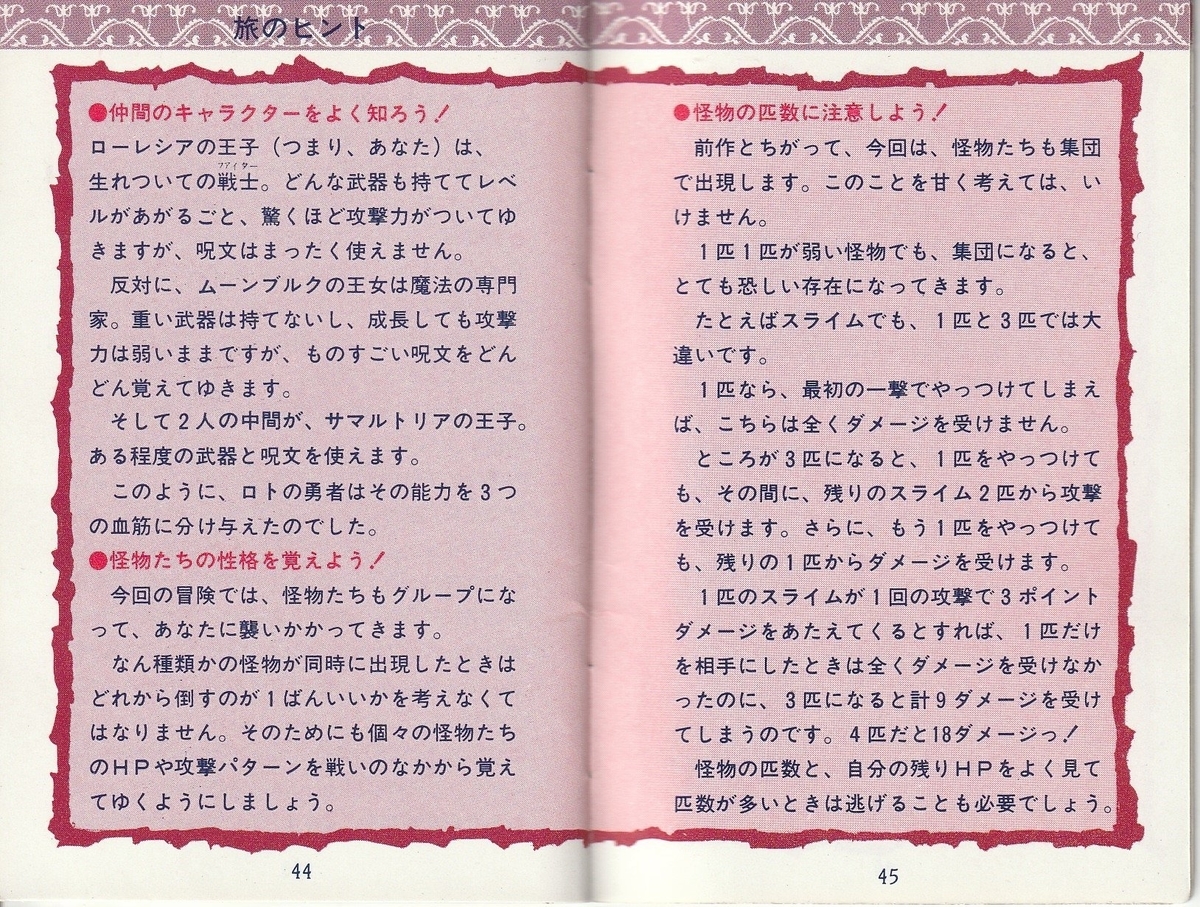 旅のヒント
●仲間のキャラクターをよく知ろう!
ローレシアの王子（つまり、あなた）は、
ファイター
生れついての戦士。どんな武器も持ててレベ
ルがあがるごと、驚くほど攻撃力がついてゆ
きますが、呪文はまったく使えません。
反対に、ムーンブルクの王女は魔法の専門
家。重い武器は持てないし、成長しても攻撃
力は弱いままですが、ものすごい呪文をどん
どん覚えてゆきます。
そして2人の中間が、サマルトリアの王子。
ある程度の武器と呪文を使えます。
このように、ロトの勇者はその能力を3つ
の血筋に分け与えたのでした。
●怪物たちの性格を覚えよう!
今回の冒険では、怪物たちもグループにな
って、あなたに襲いかかってきます。
なん種類かの怪物が同時に出現したときは
どれから倒すのが1ばんいいかを考えなくて
はなりません。そのためにも個々の怪物たち
のHPや攻撃パターンを戦いのなかから覚え
てゆくようにしましょう。
44
●怪物の匹数に注意しよう!
前作とちがって、今回は、怪物たちも集団
で出現します。このことを甘く考えては、い
けません。
1匹1匹が弱い怪物でも、集団になると、
とても恐しい存在になってきます。
たとえばスライムでも、1匹と3匹では大
違いです。
1匹なら、最初の一撃でやっつけてしまえ
ば、こちらは全くダメージを受けません。
ところが3匹になると、1匹をやっつけて
も、その間に、残りのスライム2匹から攻撃
を受けます。さらに、もう1匹をやっつけて
も、残りの1匹からダメージを受けます。
1匹のスライムが1回の攻撃で3ポイント
ダメージをあたえてくるとすれば、1匹だけ
を相手にしたときは全くダメージを受けなか
ったのに、3匹になると計9ダメージを受け
てしまうのです。4匹だと18ダメージっ!
怪物の匹数と、自分の残りHPをよく見て
匹数が多いときは逃げることも必要でしょう。
45